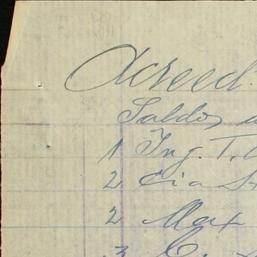 Acreed.
Saldos a
1 Ing. T. 
2 Cia St
2 Max
3